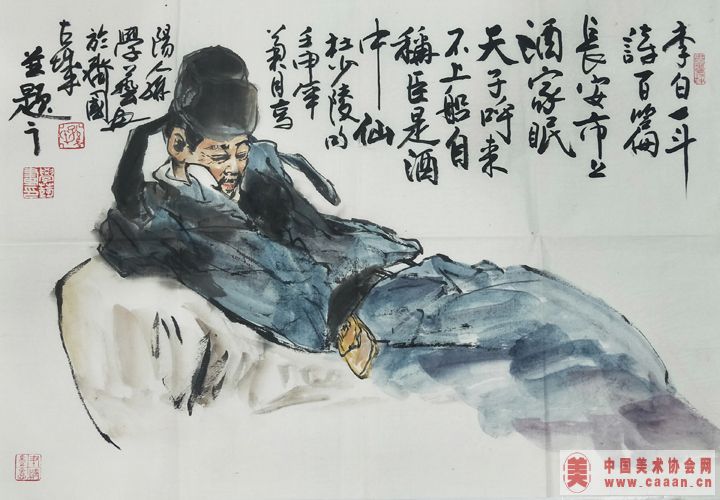 李白一斗
詩百篇
長安市上
酒家眠
天子呼来
不上船自
稱臣是酒
中仙
杜少陵
壬申年
菊月高
陽人孫
學藝
於齊國
古城
並题之
美
中国美术协会网
www.caaan.cn